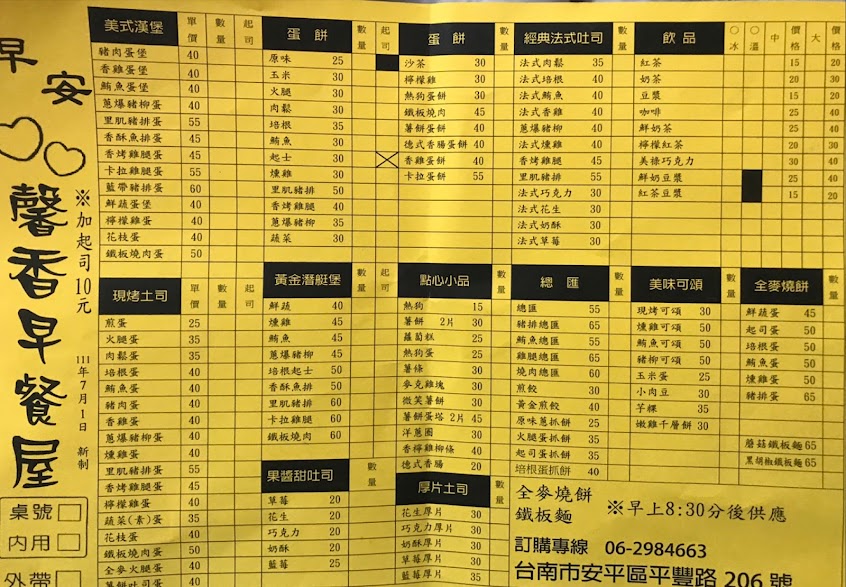 早安
馨香早餐屋
※加起司10元
111年7月1日 新制
桌號
內用
外帶
美式漢堡 單價 數量 起司
豬肉蛋堡 40
香雞蛋堡 40
鮪魚蛋堡 40
蔥爆豬柳蛋 40
里肌豬排蛋 55
香酥魚排蛋 45
香烤雞腿蛋 45
卡拉雞腿蛋 55
藍帶豬排蛋 60
鮮蔬蛋堡 40
檸檬雞蛋 40
花枝蛋 40
鐵板燒肉蛋 50
蛋餅 數量 起司
原味 25
玉米 30
火腿 30
肉鬆 30
培根 35
鮪魚 30
起士 30
燻雞 30
里肌豬排 50
香烤雞腿 40
蔥爆豬柳 35
蔬菜 30
蛋餅 數量
沙茶 30
檸檬雞 30
熱狗蛋餅 30
鐵板燒肉 45
薯餅蛋餅 40
德式香腸蛋餅 40
香雞蛋餅 40
卡拉蛋餅 55
經典法式吐司 數量
法式肉鬆 35
法式培根 40
法式鮪魚 40
法式香雞 40
蔥爆豬柳 40
法式燻雞 40
香烤雞腿 45
里肌豬排 55
法式巧克力 30
法式花生 30
法式奶酥 30
法式草莓 30
飲品 冰 溫 中 價格 大 價格
紅茶 15 20
奶茶 20 30
豆漿 15 20
咖啡 25 40
鮮奶茶 25 40
檸檬紅茶 20 30
美祿巧克力 30 40
鮮奶豆漿 25 40
紅茶豆漿 15 20
現烤土司 單價 數量 起司
煎蛋 25
火腿蛋 35
肉鬆蛋 35
培根蛋 40
鮪魚蛋 40
豬肉蛋 40
香雞蛋 40
蔥爆豬柳蛋 40
燻雞蛋 40
里肌豬排蛋 55
香烤雞腿蛋 45
檸檬雞蛋 40
蔬菜(素)蛋 35
花枝蛋 40
鐵板燒肉蛋 50
全麥火腿蛋 40
黃金潛艇堡 數量 起司
鮮蔬 40
燻雞 45
鮪魚 45
蔥爆豬柳 45
培根起士 50
香酥魚排 50
里肌豬排 60
卡拉雞腿 60
鐵板燒肉 60
果醬甜吐司 數量
草莓 20
花生 20
巧克力 20
奶酥 20
藍莓 25
點心小品 數量
熱狗 15
薯餅 2片 30
蘿蔔糕 25
熱狗蛋 25
薯條 30
麥克雞塊 30
微笑薯餅 30
薯餅蛋塔 2片 45
洋蔥圈 30
香檸雞柳條 40
德式香腸 20
厚片土司 數量
花生厚片 30
巧克力厚片 30
奶酥厚片 30
草莓厚片 30
藍莓厚片 35
總匯 數量
總匯 55
豬排總匯 65
鮪魚總匯 65
雞腿總匯 65
燒肉總匯 60
煎餃 30
黃金煎餃 40
原味蔥抓餅 25
火腿蛋抓餅 35
起司蛋抓餅 35
培根蛋抓餅 40
美味可頌 數量
現烤可頌 30
燻雞可頌 50
鮪魚可頌 50
豬柳可頌 50
玉米蛋 25
小肉豆 30
芋粿 35
嫩雞千層餅 30
全麥燒餅 數量
鮮蔬蛋 45
起司蛋 50
培根蛋 50
鮪魚蛋 50
燻雞蛋 50
豬排蛋 65
蘑菇鐵板麵 65
黑胡椒鐵板麵 65
全麥燒餅
鐵板麵 ※早上8:30分後供應
訂購專線 06-2984663
台南市安平區平豐路 206 號